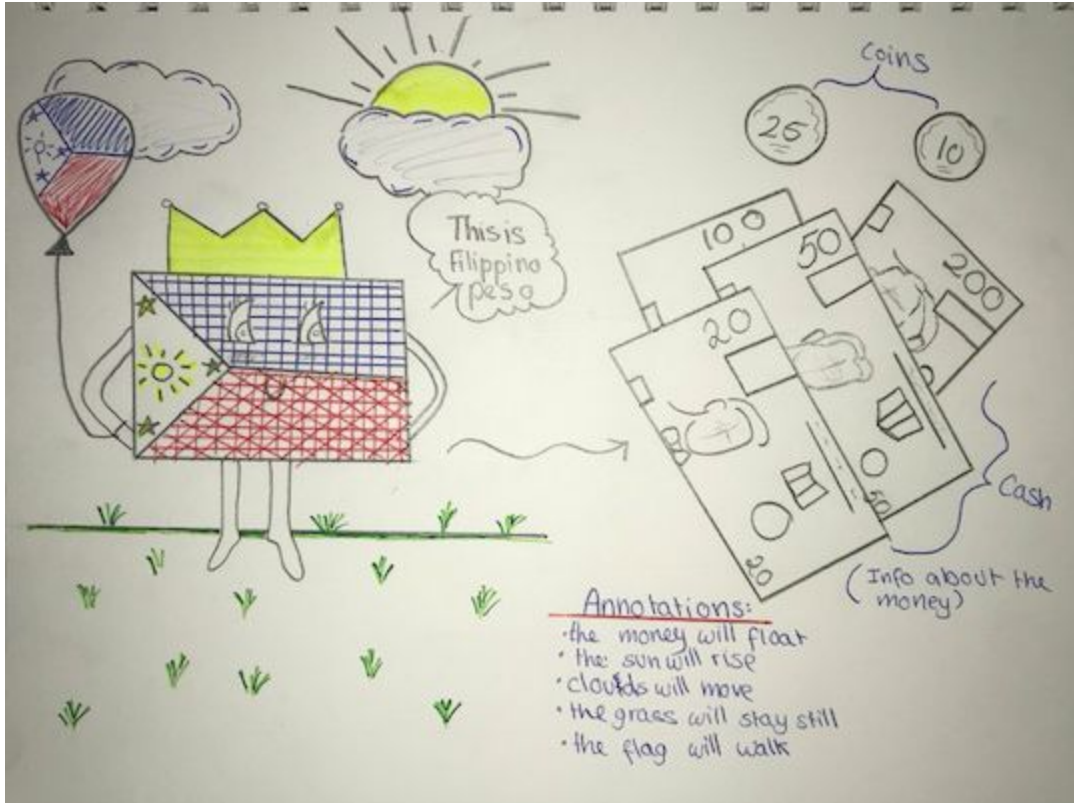 Coins
25
10
This is
Filippino
peso
100
50
200
20
50
20
Cash
(Info about the
money)
Annotations:
• the money will float
• the sun will rise
• clouds will move
• the grass will stay still
• the flag will walk